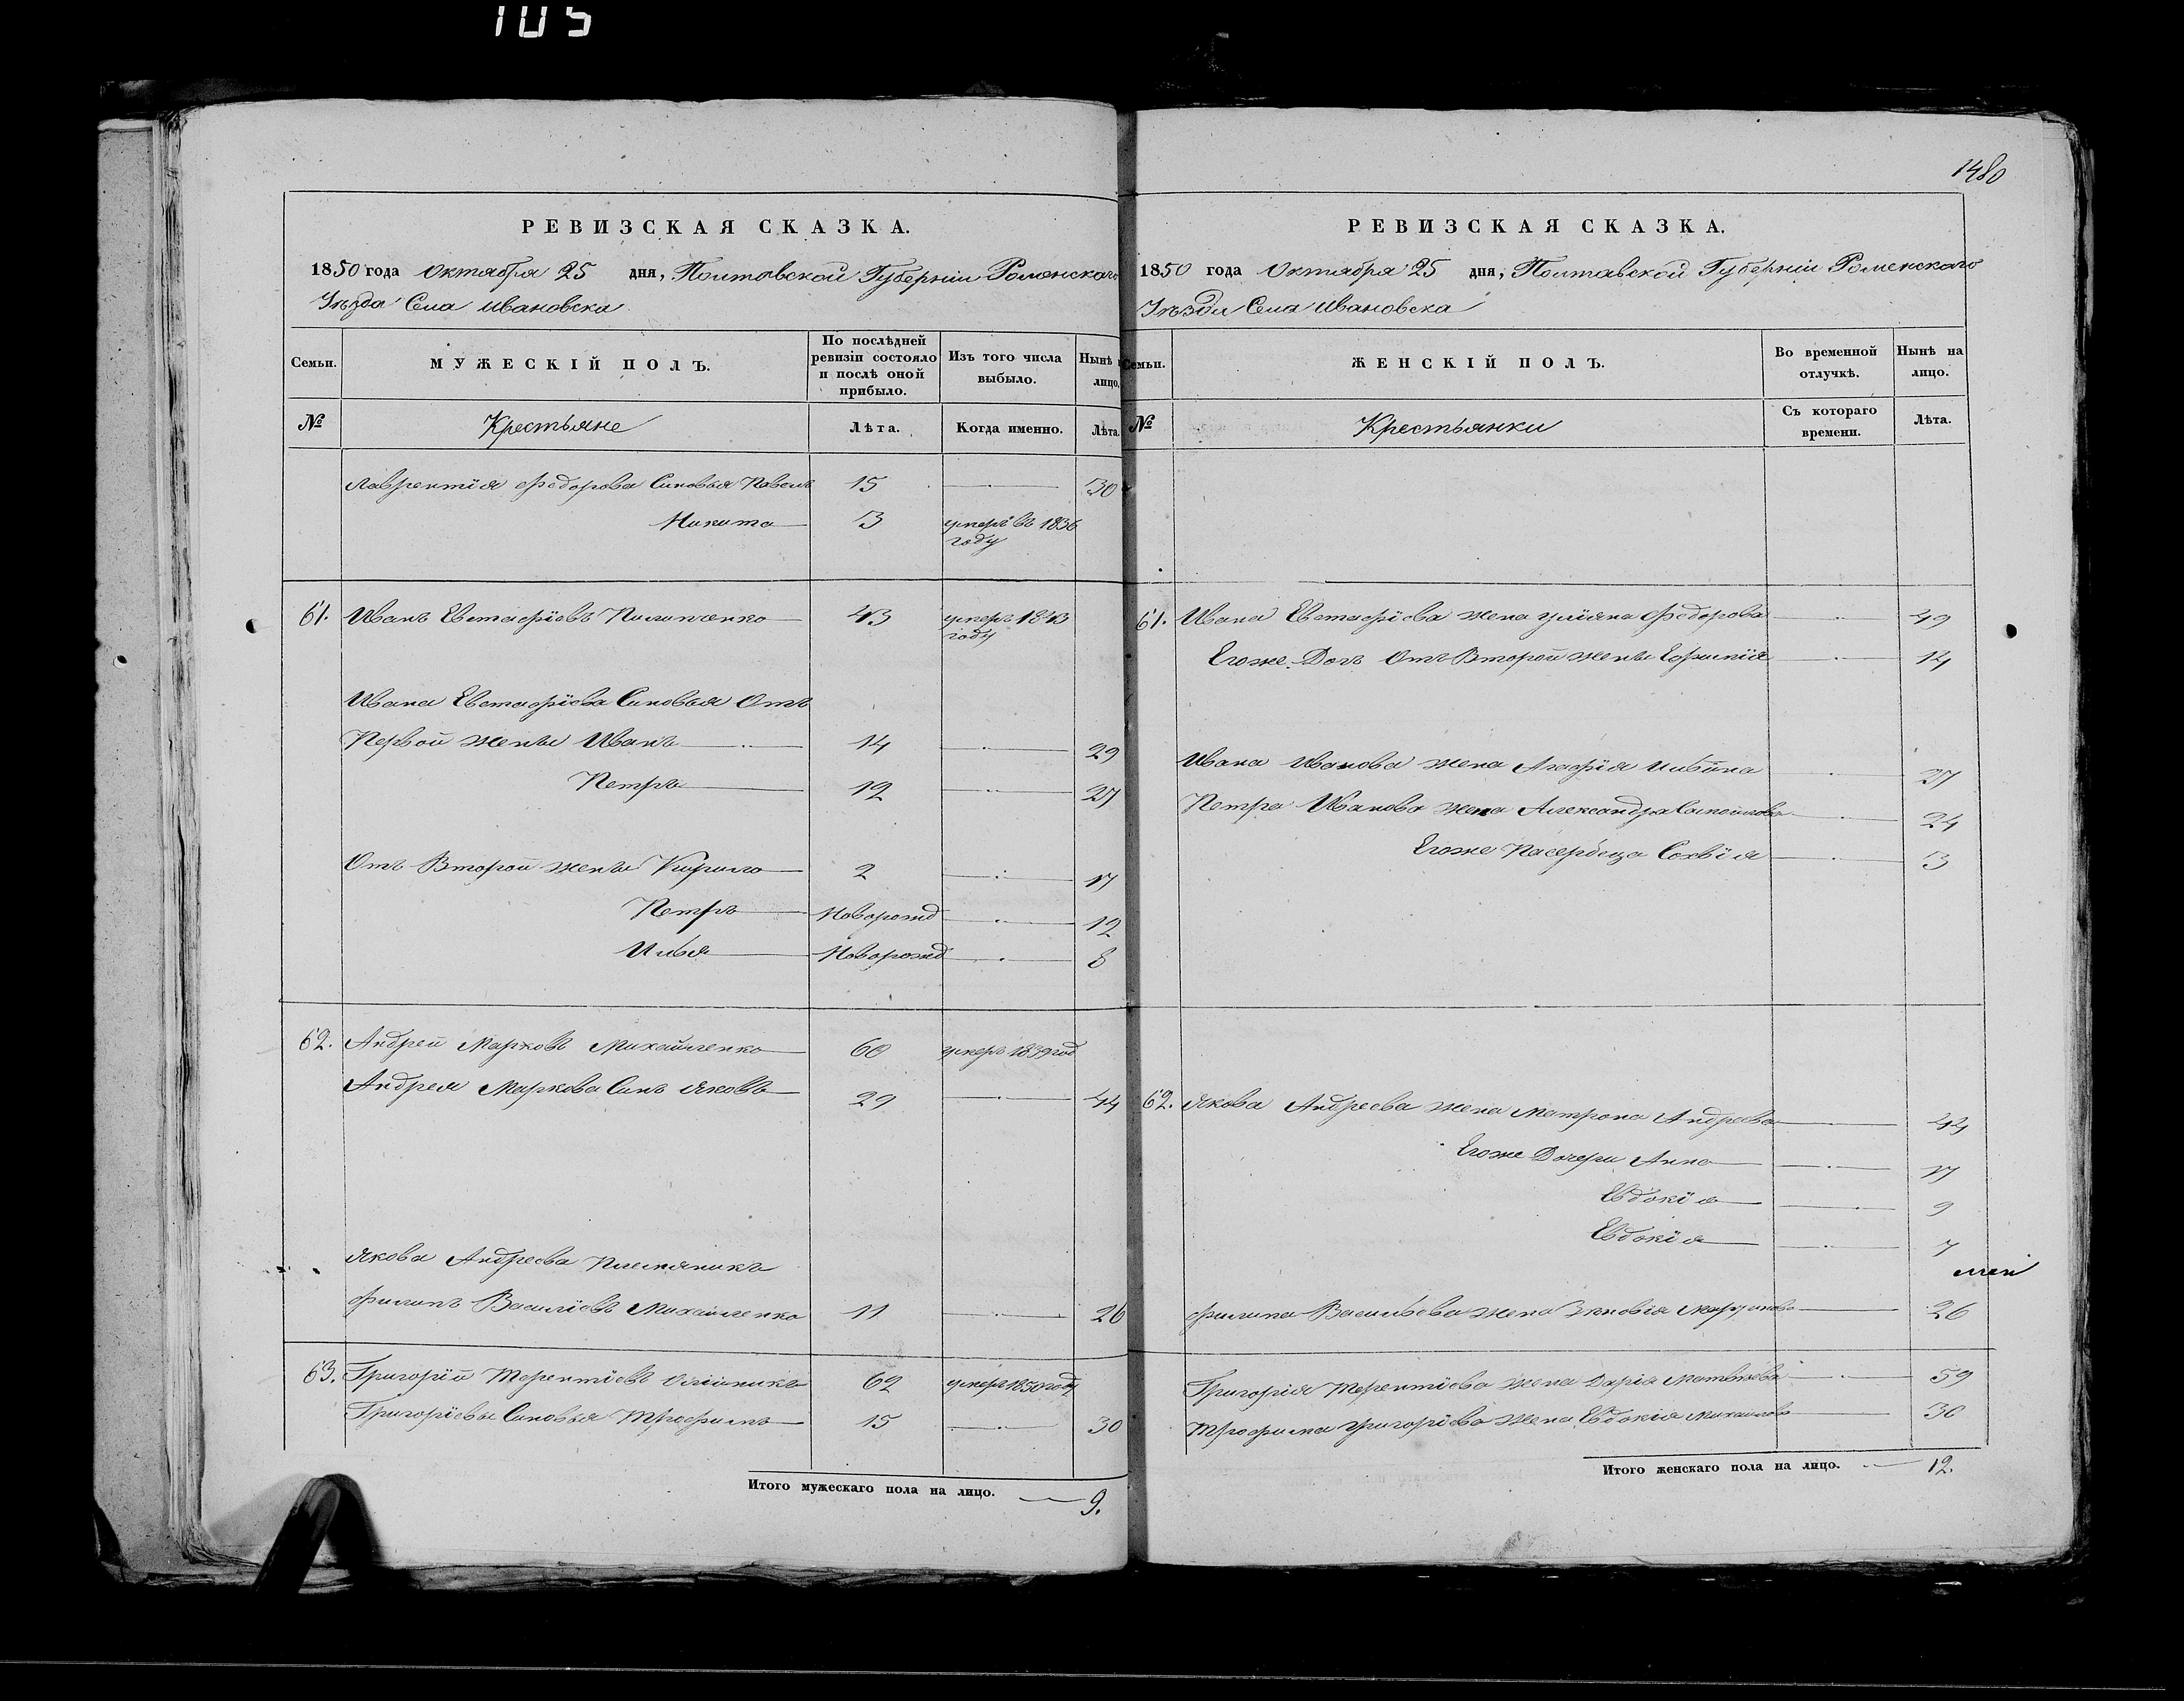 105
1480
РЕВИЗСКАЯ СКАЗКА.
1850 года Октября 25 дня, Полтавской Губерніи Роменскаго
Уѣзда Села Ивановска
Семьи. МУЖЕСКІЙ ПОЛЪ. По послѣдней ревизіи состояло и послѣ оной прибыло. Изъ того числа выбыло. Нынѣ лицо.
№ Крестьяне Лѣта. Когда именно. Лѣта.
Лаврентія Федорова Сыновья Павелъ 15 30
Никита 3 умеръ въ 1836
году
61. Иванъ Евстафіевъ 43 умеръ 1843
году
Ивана Евстафіева Сыновья Отъ
Первой жены Иванъ 14 29
Петръ 12 27
Отъ Второй жены Кирило 2 17
Петръ Новорожд 12
Илья Новорожд 8
62. Андрей Марковъ Михайленко 60 умеръ 1839 год
Андрея Маркова Сынъ Яковъ 29 44
Якова Андреева Племяникъ
Филипъ Василіевъ Михайленко 11 26
63. Григорій Терентіевъ Олійникъ 62 умеръ 1850 году
Григоріевы Сыновья Трофимъ 15 30
Итого мужескаго пола на лицо. 9.
РЕВИЗСКАЯ СКАЗКА.
1850 года Октября 25 дня, Полтавской Губерніи Роменскаго
Уѣзда Села Ивановска
Семьи. ЖЕНСКІЙ ПОЛЪ. Во временной отлучкѣ. Нынѣ на лицо.
№ Крестьянки Съ котораго времени. Лѣта.
61. Ивана Евстафіева жена Уліяна Федорова 49
Егоже Дочь Отъ Второй жены Ефимія 14
Ивана Иванова жена Агафія Ильина 27
Петра Иванова жена Александра Самойлова 24
Егоже Пасербица Софія 3
62. Якова Андреева жена Матрона Андреева 44
Егоже Дочери Анна 17
Евдокія 9
Евдокія 7
Филипа Васильева жена Зиновія 26
Григорія Терентіева жена Дарія Матвѣева 59
Трофима Григоріева жена Евдокія Михайлова 30
Итого женскаго пола на лицо. 12.